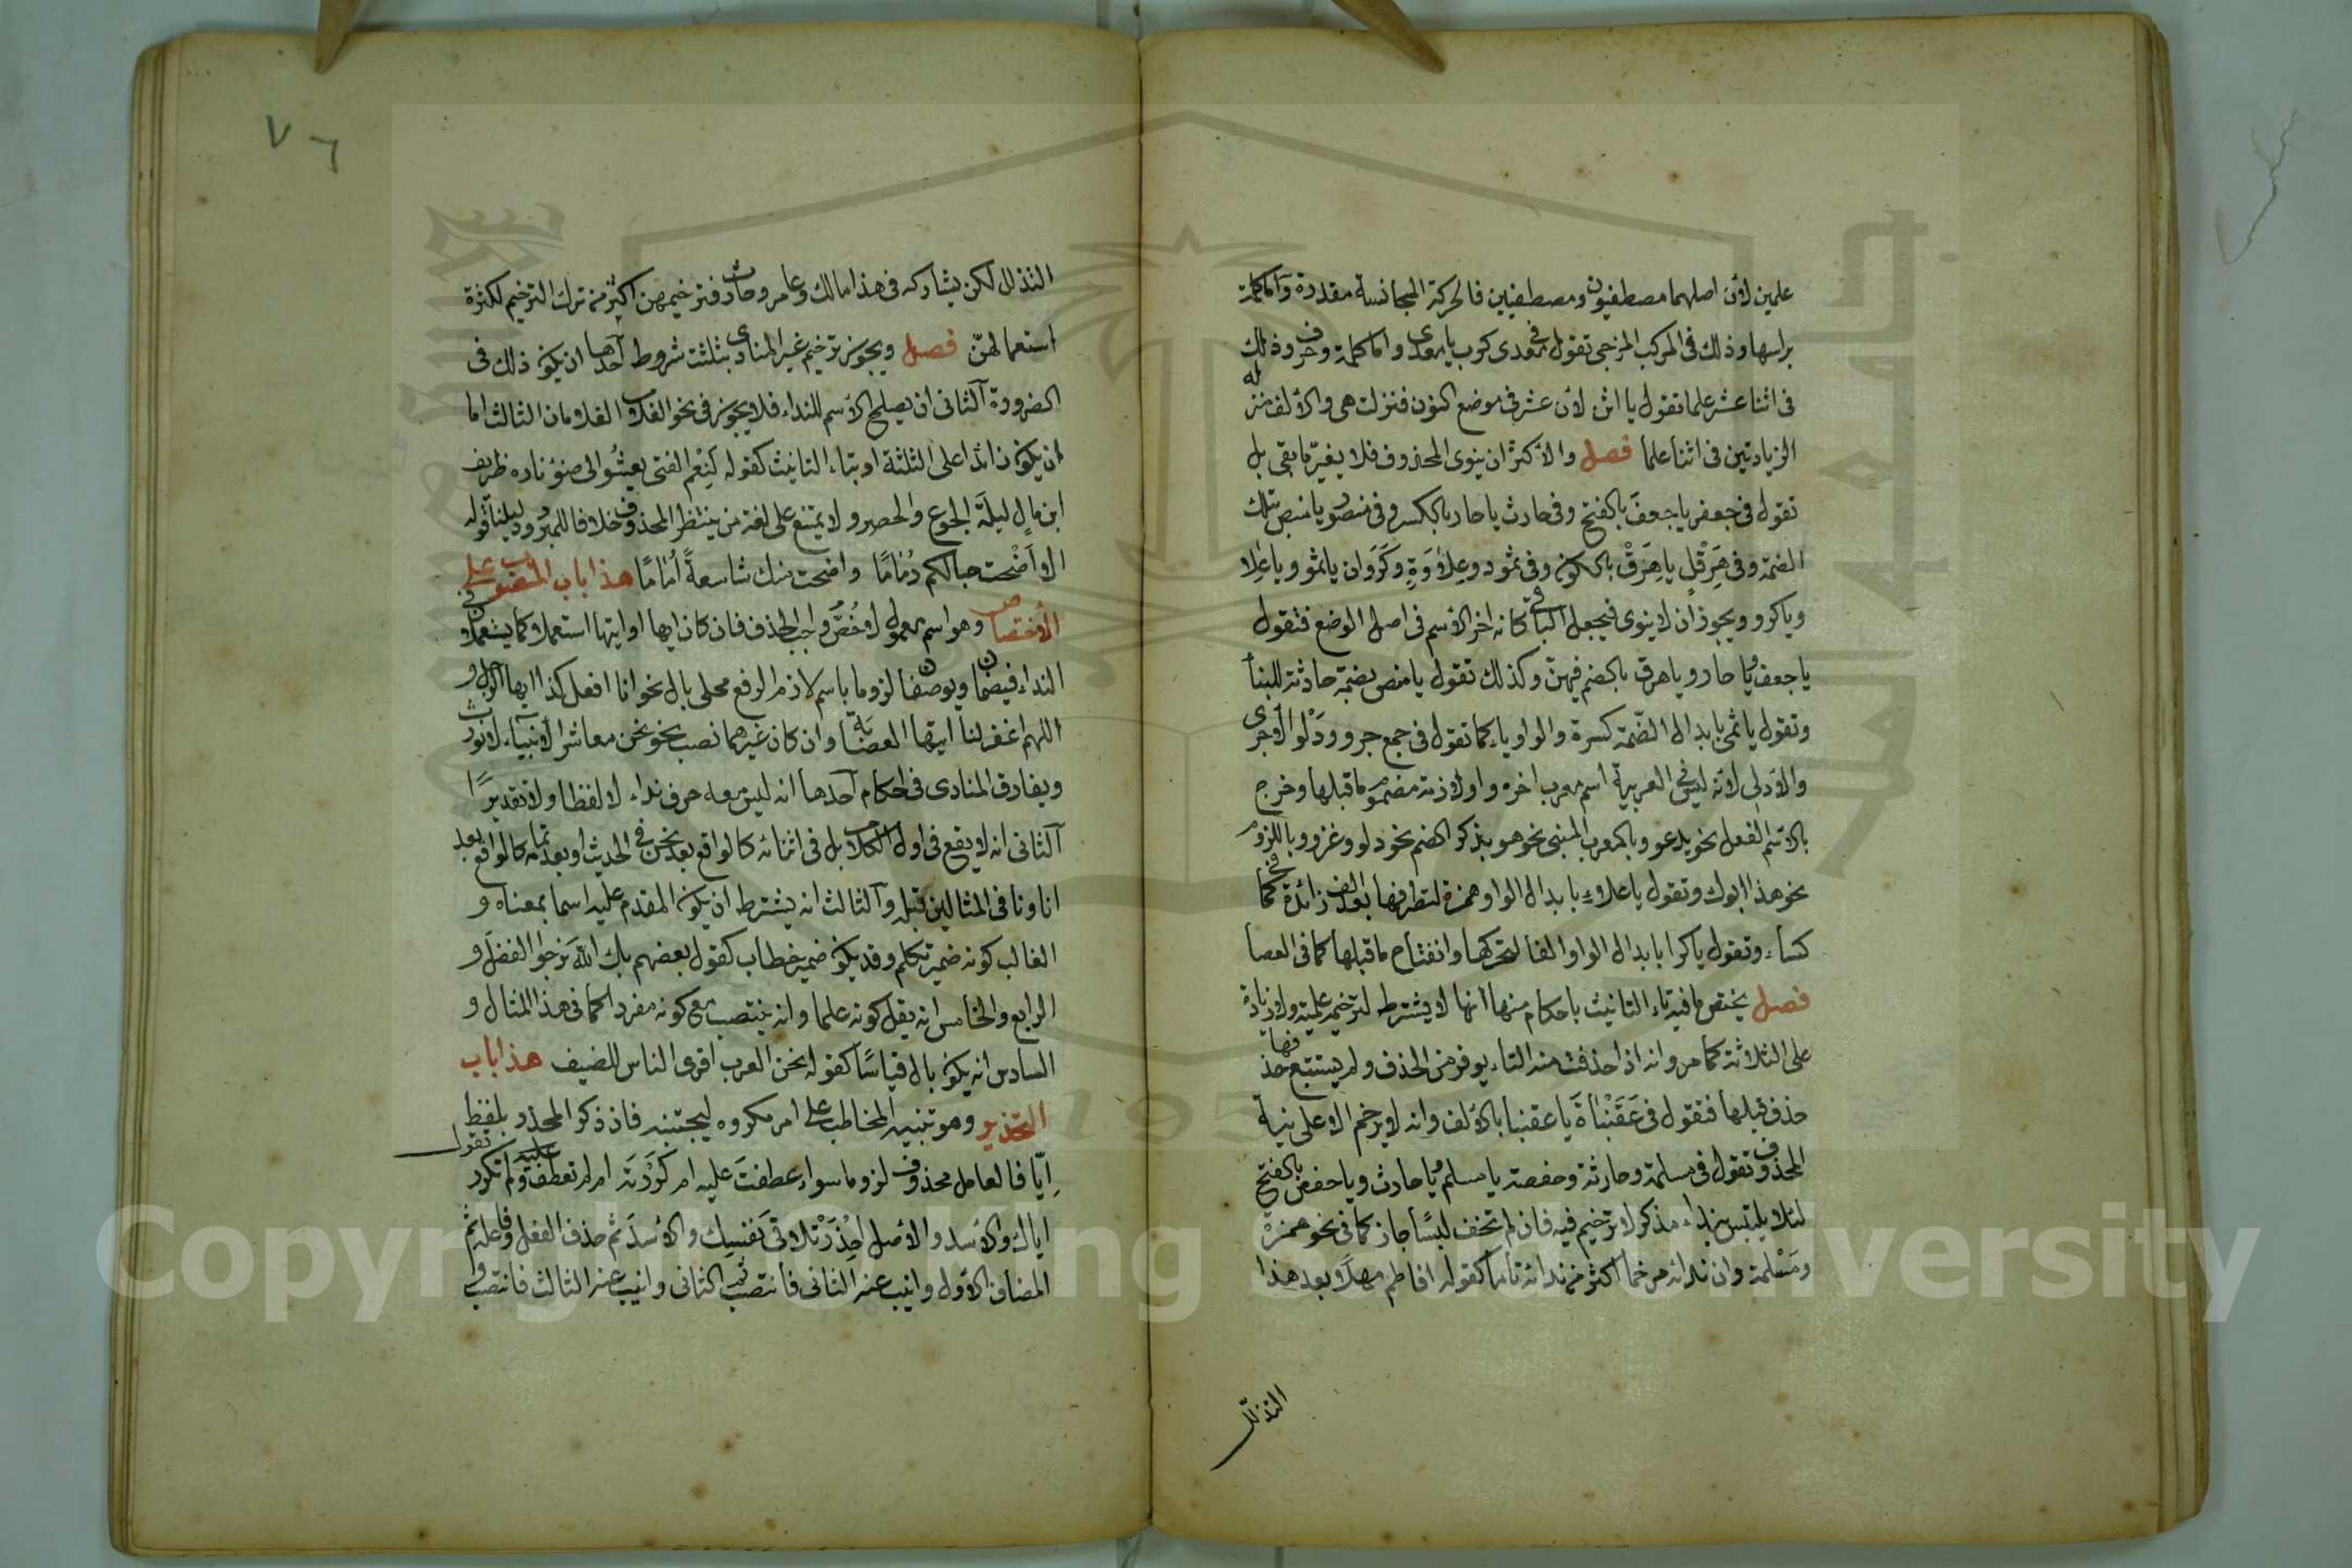 علمين لأن اصلهما مصطفيون ومصطفيين فالحركة المجانسة مقدرة وأما كلمة
براسها وذلك في المركب المزجي تقول في معدى كرب يا معدى واما كلمة وحرف وذلك
في اثنا عشر علما تقول يا اثن لأن عشر في موضع النون فنزلت هي والألف منزلة
الزيادتين في اثنا علما فصل والأكثر ان ينوى المحذوف فلا يغير ما بقي بل
تقول في جعفر يا جعفَ بالفتح وفي حارث يا حار بالكسر وفي منصور يا منص بتلك
الضمة وفي هِرَقْلٍ يا هِرَقْ بالسكون وفي ثمود وعِلاوَةٍ وكَرَوَان يا ثمو ويا عِلا
ويا كرو ويجوز ان لا ينوى فيجعل الباقي كانه اخر الاسم في اصل الوضع فتقول
يا جعف ويا حار ويا هرق بالضم فيهنّ وكذلك تقول يا منص بضمة حادثة للبنا
وتقول يا ثمى بابدال الضّمة كسرة والواو ياء كما تقول في جمع جرو ودَلْو الأجرى
والأدلى لأنه ليس في العربية اسم معرب اخره واو لازمة مضموم ما قبلها وخرج
بالاسم الفعل نحو يدعو وبالمعرب المبنى نحو هو وبذكر الضم نحو دلو وغزو وباللزوم
نحو هذا ابوك وتقول يا علاءُ بابدال الواو همزة لتطرفها بعد الف زائدة كما في
كساء وتقول يا كرا بابدال الواو الفا لتحركها وانفتاح ما قبلها كما في العصا
فصل يختص ما فيه تاء التانيث باحكام منها انها لا يشترط لترخيمه علمية ولا زيادة
على الثلاثة كما مر وانه اذا حذفت منه التاء يوفر من الحذف ولم يستتبع حذفها
حذف قبلها فتقول في عَقَنْباةَ يا عقنبا بالألف وانه لا يرخم الا على نية
المحذوف تقول في مسلمة وحارثة وحفصة يا مسلم ويا حارث ويا حفص بالفتح
لئلا يلتبس بنداء مذكر لا ترخيم فيه فان لم تخف لبسًا جاز كما في نحو همزة
ومَسْلمة وان نداءه مرخما اكثر من ندائه تاما كقوله افاطم مهلا بعد هذا
التذلل
٧٦
التذلل لكن يشاركه في هذا مالك وعامر وحارث فترخيمهن اكثر من ترك الترخيم لكثرة
استعمالهنّ فصل ويجوز ترخيم غير المنادى بثلثة شروط أحدها ان يكون ذلك في
الضرورة الثاني ان يصلح الاسم للنداء فلا يجوز في نحو الغلام الغلامان الثالث اما
ان يكون زائدا على الثلثة او بتاء التانيث كقوله لَنِعْم الفتى يعشُوا الى ضوء ناره طريف
ابن مالٍ ليلةَ الجوع والحصر ولا يمتنع على لغة من ينتظر المحذوف خلافا للمبرد ودليلنا قوله
الا اَضْحت حبالكم رُمَامًا واضحت منك شاسعةً أُمَامًا هذا باب المنصوب على
الأختصاص وهو اسم معمول لاخُصُّ واجب الحذف فان كان ايها او ايتها استعملا كما يستعملان في
النداء فيضمان ويوصفان لزوما باسم لازم الرفع محلى بال نحو انا افعل كذا ايها الرجل و
اللهم اغفر لنا ايتها العصابة وان كان غيرهما نصب نحو نحن معاشر الأنبياء لا نورث
ويفارق المنادى في احكام أحدها انه ليس معه حرف نداء لا لفظا ولا تقديرًا
الثاني انه لا يقع في اول الكلام بل في اثنائه كالواقع بعد نحن في الحديث او بعد تمامه كالواقع بعد
انا ونا في المثالين قبله والثالث انه يشترط ان يكون المقدم عليه اسما بمعناه و
الغالب كونه ضمير تكلم وقد يكون ضمير خطاب كقول بعضهم بك اللهَ نرجوا الفضل و
الرابع والخامس انه يقل كونه علما وانه ينتصب مع كونه مفردا كما في هذا المثال و
السادس انه يكون بال قياسًا كقوله نحن العرب اقرى الناس للضيف هذا باب
التحذير وهو تنبيه المخاطب على امر مكروه ليجتنبه فان ذكر المحذر بلفظ
إيّا فالعامل محذوف لزوما سواء عطفتَ عليه ام كرّرته ام لم تعطف عليه ولم تكرر تقول
اياك والأسد والأصل احْذَرْ تلاقى نفسِك والأسدَ ثم حذف الفعل وفاعله ثم
المضاف الأول وانيب عنه الثاني فانتصب ثم الثاني وانيب عنه الثالث فانتصب و
Copyright © King Saud University